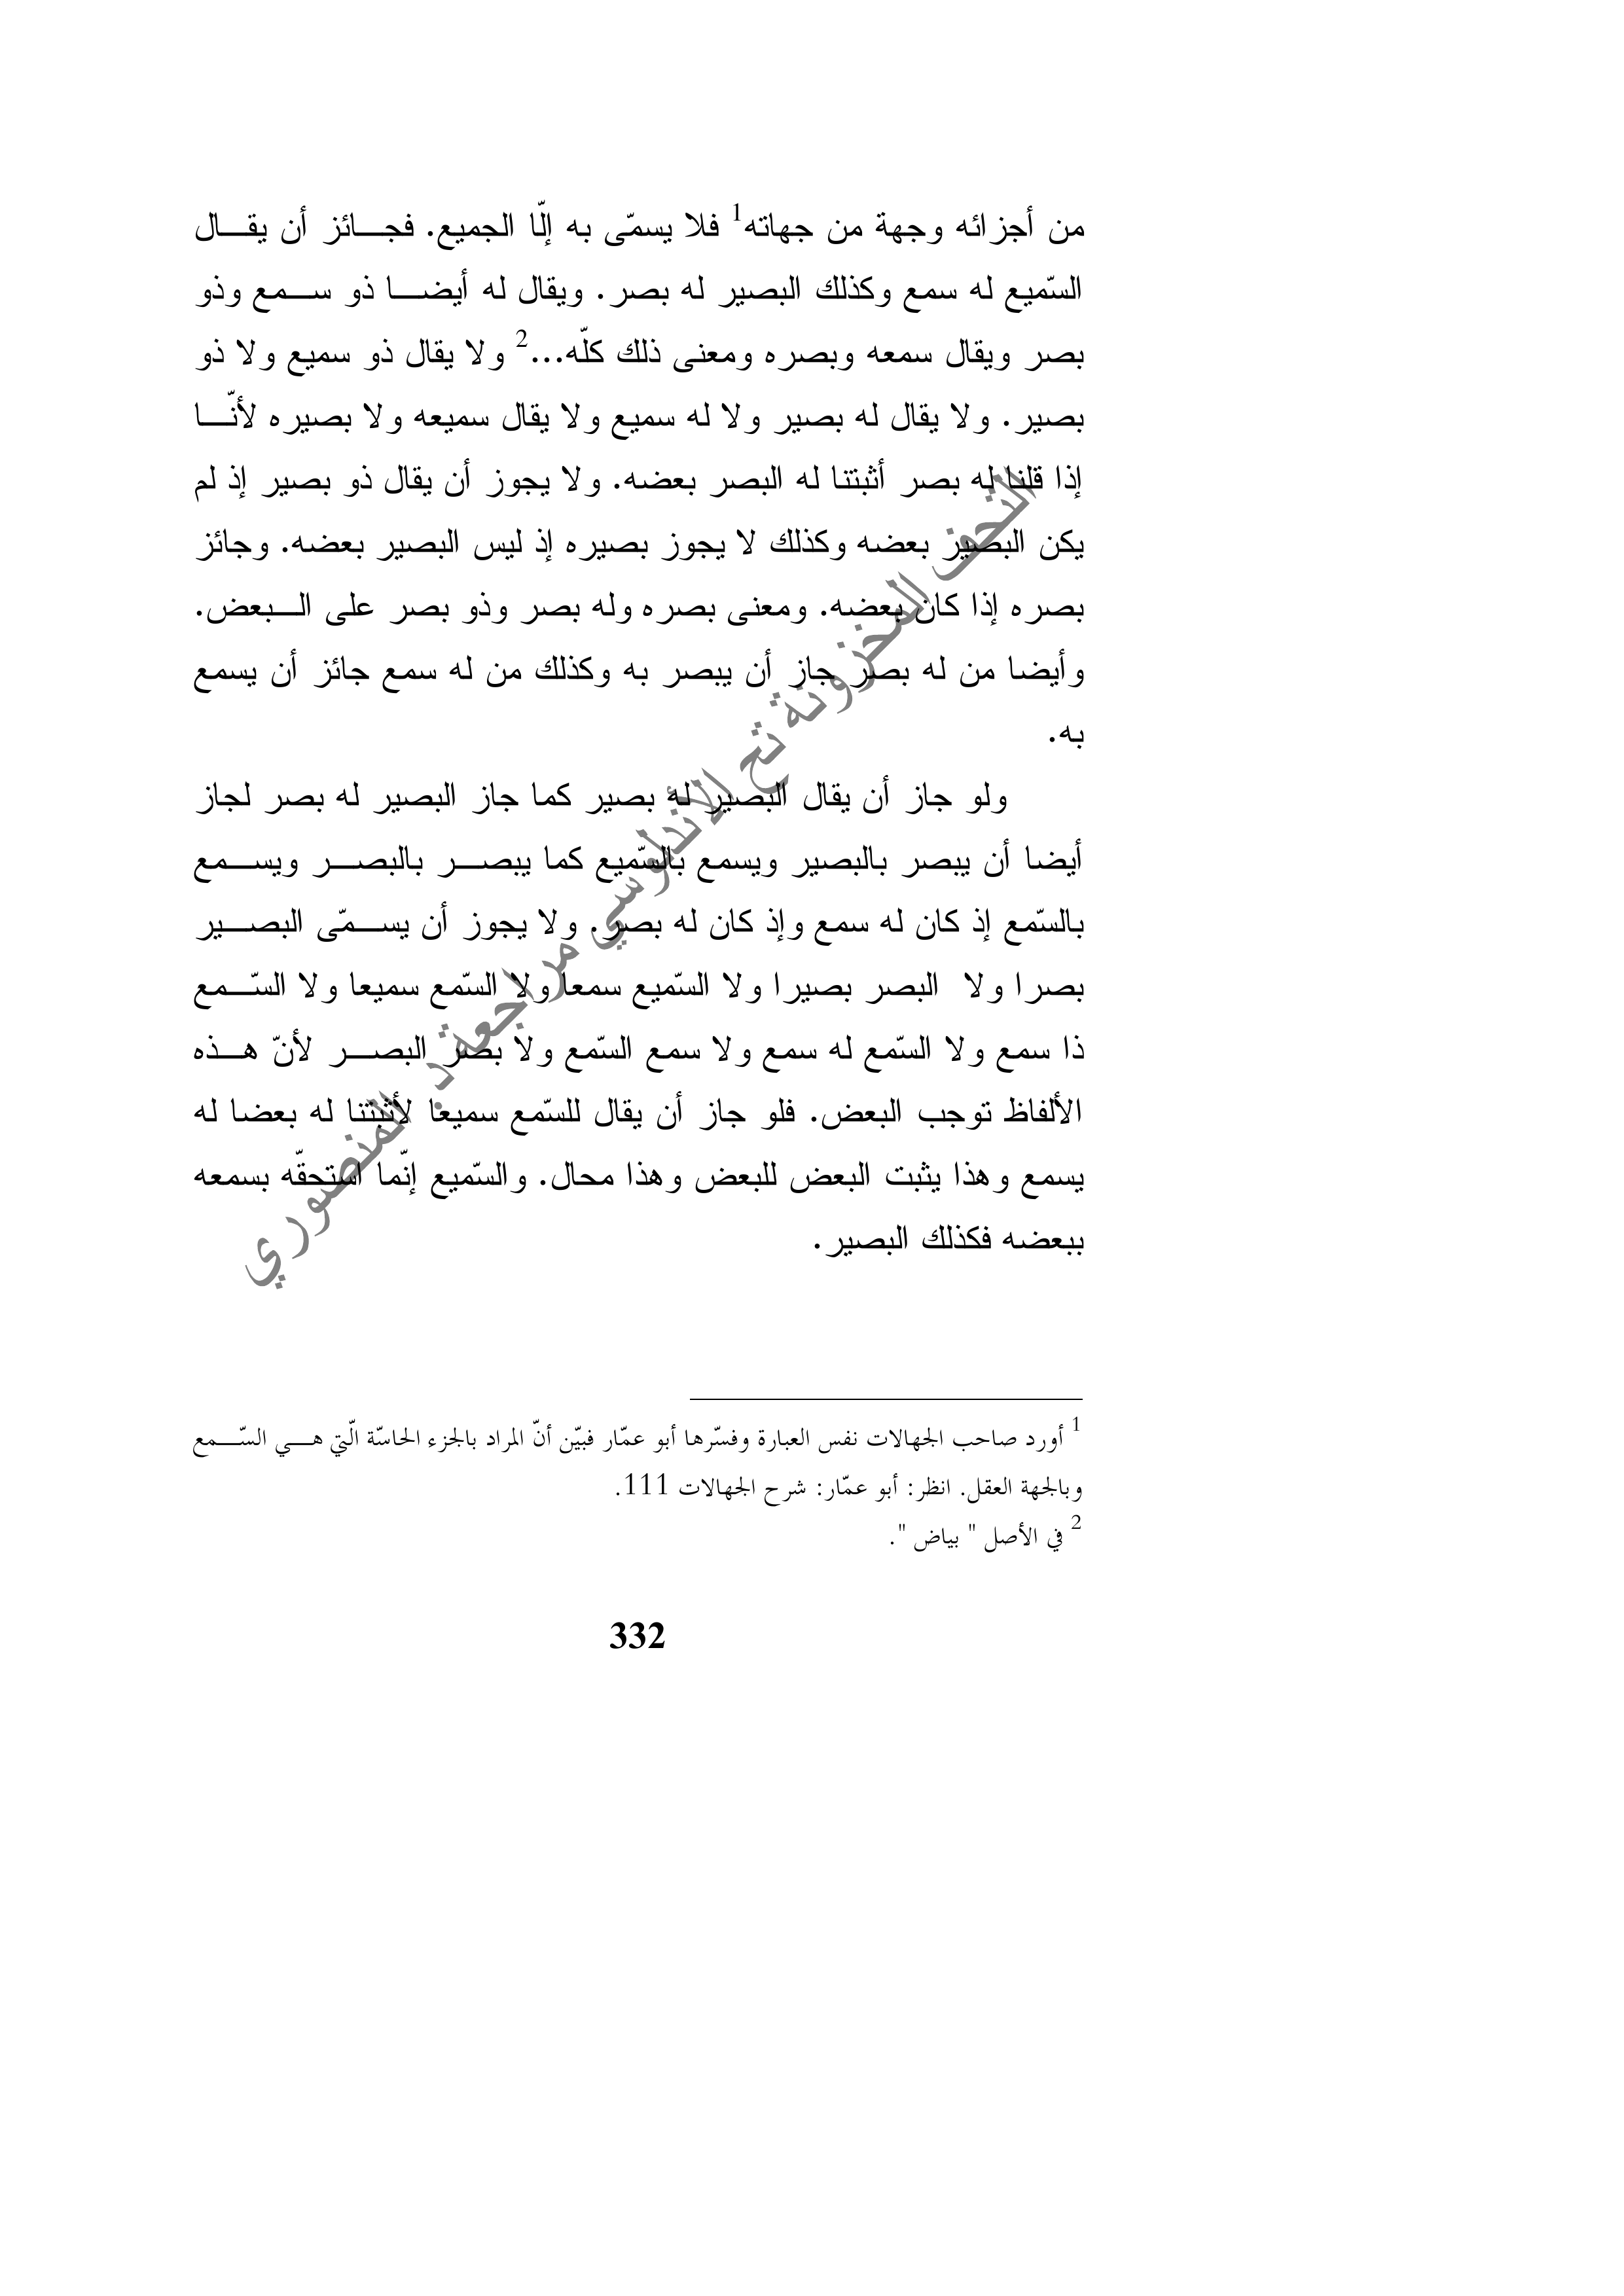 من أجزائه وجهة من جهاته1 فلا يسمّى به إلّا الجميع. فجـــائز أن يقـــال
السّميع له سمع وكذلك البصير له بصر. ويقال له أيضـــا ذو ســـمع وذو
بصر ويقال سمعه وبصره ومعنى ذلك كلّه...2 ولا يقال ذو سميع ولا ذو
بصير. ولا يقال له بصير ولا له سميع ولا يقال سميعه ولا بصيره لأنّـــا
إذا قلنا له بصر أثبتنا له البصر بعضه. ولا يجوز أن يقال ذو بصير إذ لم
يكن البصير بعضه وكذلك لا يجوز بصيره إذ ليس البصير بعضه. وجائز
بصره إذا كان بعضه. ومعنى بصره وله بصر وذو بصر على الـــبعض.
وأيضا من له بصر جاز أن يبصر به وكذلك من له سمع جائز أن يسمع
به.
ولو جاز أن يقال البصير له بصير كما جاز البصير له بصر لجاز
أيضا أن يبصر بالبصير ويسمع بالسّميع كما يبصـــر بالبصـــر ويســـمع
بالسّمع إذ كان له سمع وإذ كان له بصر. ولا يجوز أن يســـمّى البصـــير
بصرا ولا البصر بصيرا ولا السّميع سمعا ولا السّمع سميعا ولا السّـــمع
ذا سمع ولا السّمع له سمع ولا سمع السّمع ولا بصر البصـــر لأنّ هـــذه
الألفاظ توجب البعض. فلو جاز أن يقال للسّمع سميعا لأثبتنا له بعضا له
يسمع وهذا يثبت البعض للبعض وهذا محال. والسّميع إنّما استحقّه بسمعه
ببعضه فكذلك البصير.
التحف المخزونة تح الأندلوسي مراجعة د. المنصوري
1 أورد صاحب الجهالات نفس العبارة وفسّرها أبو عمّار فبيّن أنّ المراد بالجزء الحاسّة الّتي هـــي السّـــمع
وبالجهة العقل. انظر: أبو عمّار: شرح الجهالات 111.
2 في الأصل " بياض ".
332